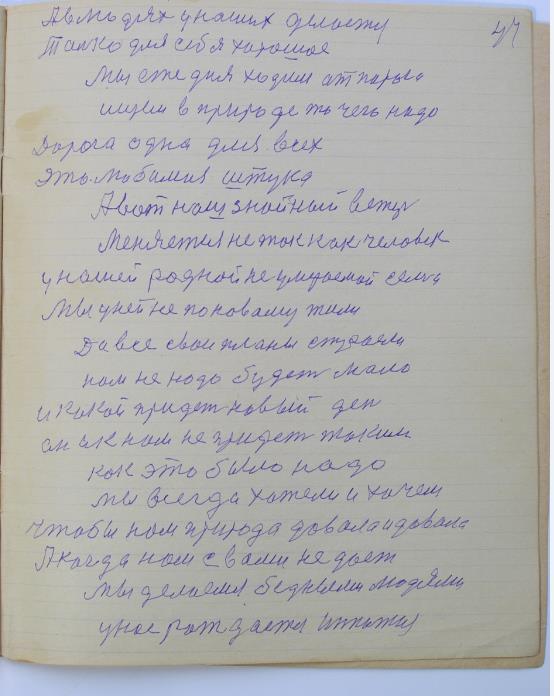 А в людях у наших делается 47
Толко для себя хорошое
Мы еже дня ходим ат парыва
ищем в природе то чего надо
Дорога одна для всех
это любимая штука
А вот наш знойный ветер
Меняется не так как человек
у нашей родной не умираемой
Мы у ней не поноваму жили
Да все свои планы строели
нам не надо будет мало
и какой придет новый ден
он к нам не придет таким
как это было надо
мы всегда хотели и хочем
чтобы нам природа довала и довала
А когда нам с вами не дает
мы делаемся бедными людями
у нас рождается